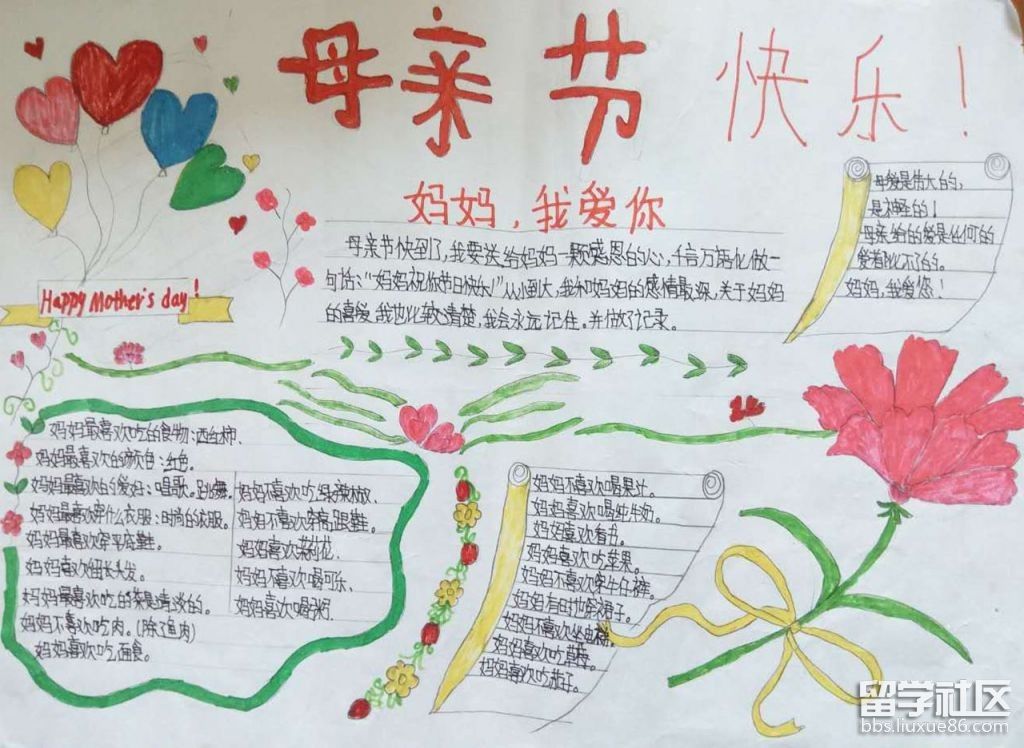 母亲节 快乐！
妈妈，我爱你
Happy Mother's day!
母亲节快到了，我要送给妈妈一颗感恩的心，千言万语化做一
句话：“妈妈祝你节日快乐！”从小到大，我和妈妈的感情最深，关于妈妈
的喜爱，我也比较清楚，我会永远记住。并做了记录。
母爱是伟大的，
是神圣的！
母亲给的爱是任何的
爱都比不了的。
妈妈，我爱您！
妈妈最喜欢吃的食物：西红柿．
妈妈最喜欢的颜色：红色。
妈妈最喜欢的爱好：唱歌。跳舞。
妈妈最喜欢穿什么衣服：时尚的衣服。
妈妈最喜欢穿平底鞋。
妈妈喜欢细长头发。
妈妈最喜欢吃的菜是清淡的。
妈妈不喜欢吃肉。(除了鱼肉)
妈妈喜欢吃面食。
妈妈不喜欢吃绿辣椒．
妈妈不喜欢穿高跟鞋。
妈妈喜欢茉莉花．
妈妈不喜欢喝可乐．
妈妈喜欢喝粥．
妈妈不喜欢喝果汁。
妈妈喜欢喝纯牛奶。
妈妈喜欢看书。
妈妈喜欢吃苹果。
妈妈不喜欢穿牛仔裤。
妈妈有时也会穿裙子。
妈妈不喜欢坐电梯。
妈妈喜欢吃草莓。
妈妈喜欢吃茄子。
留学社区
bbs.liuxue86.com